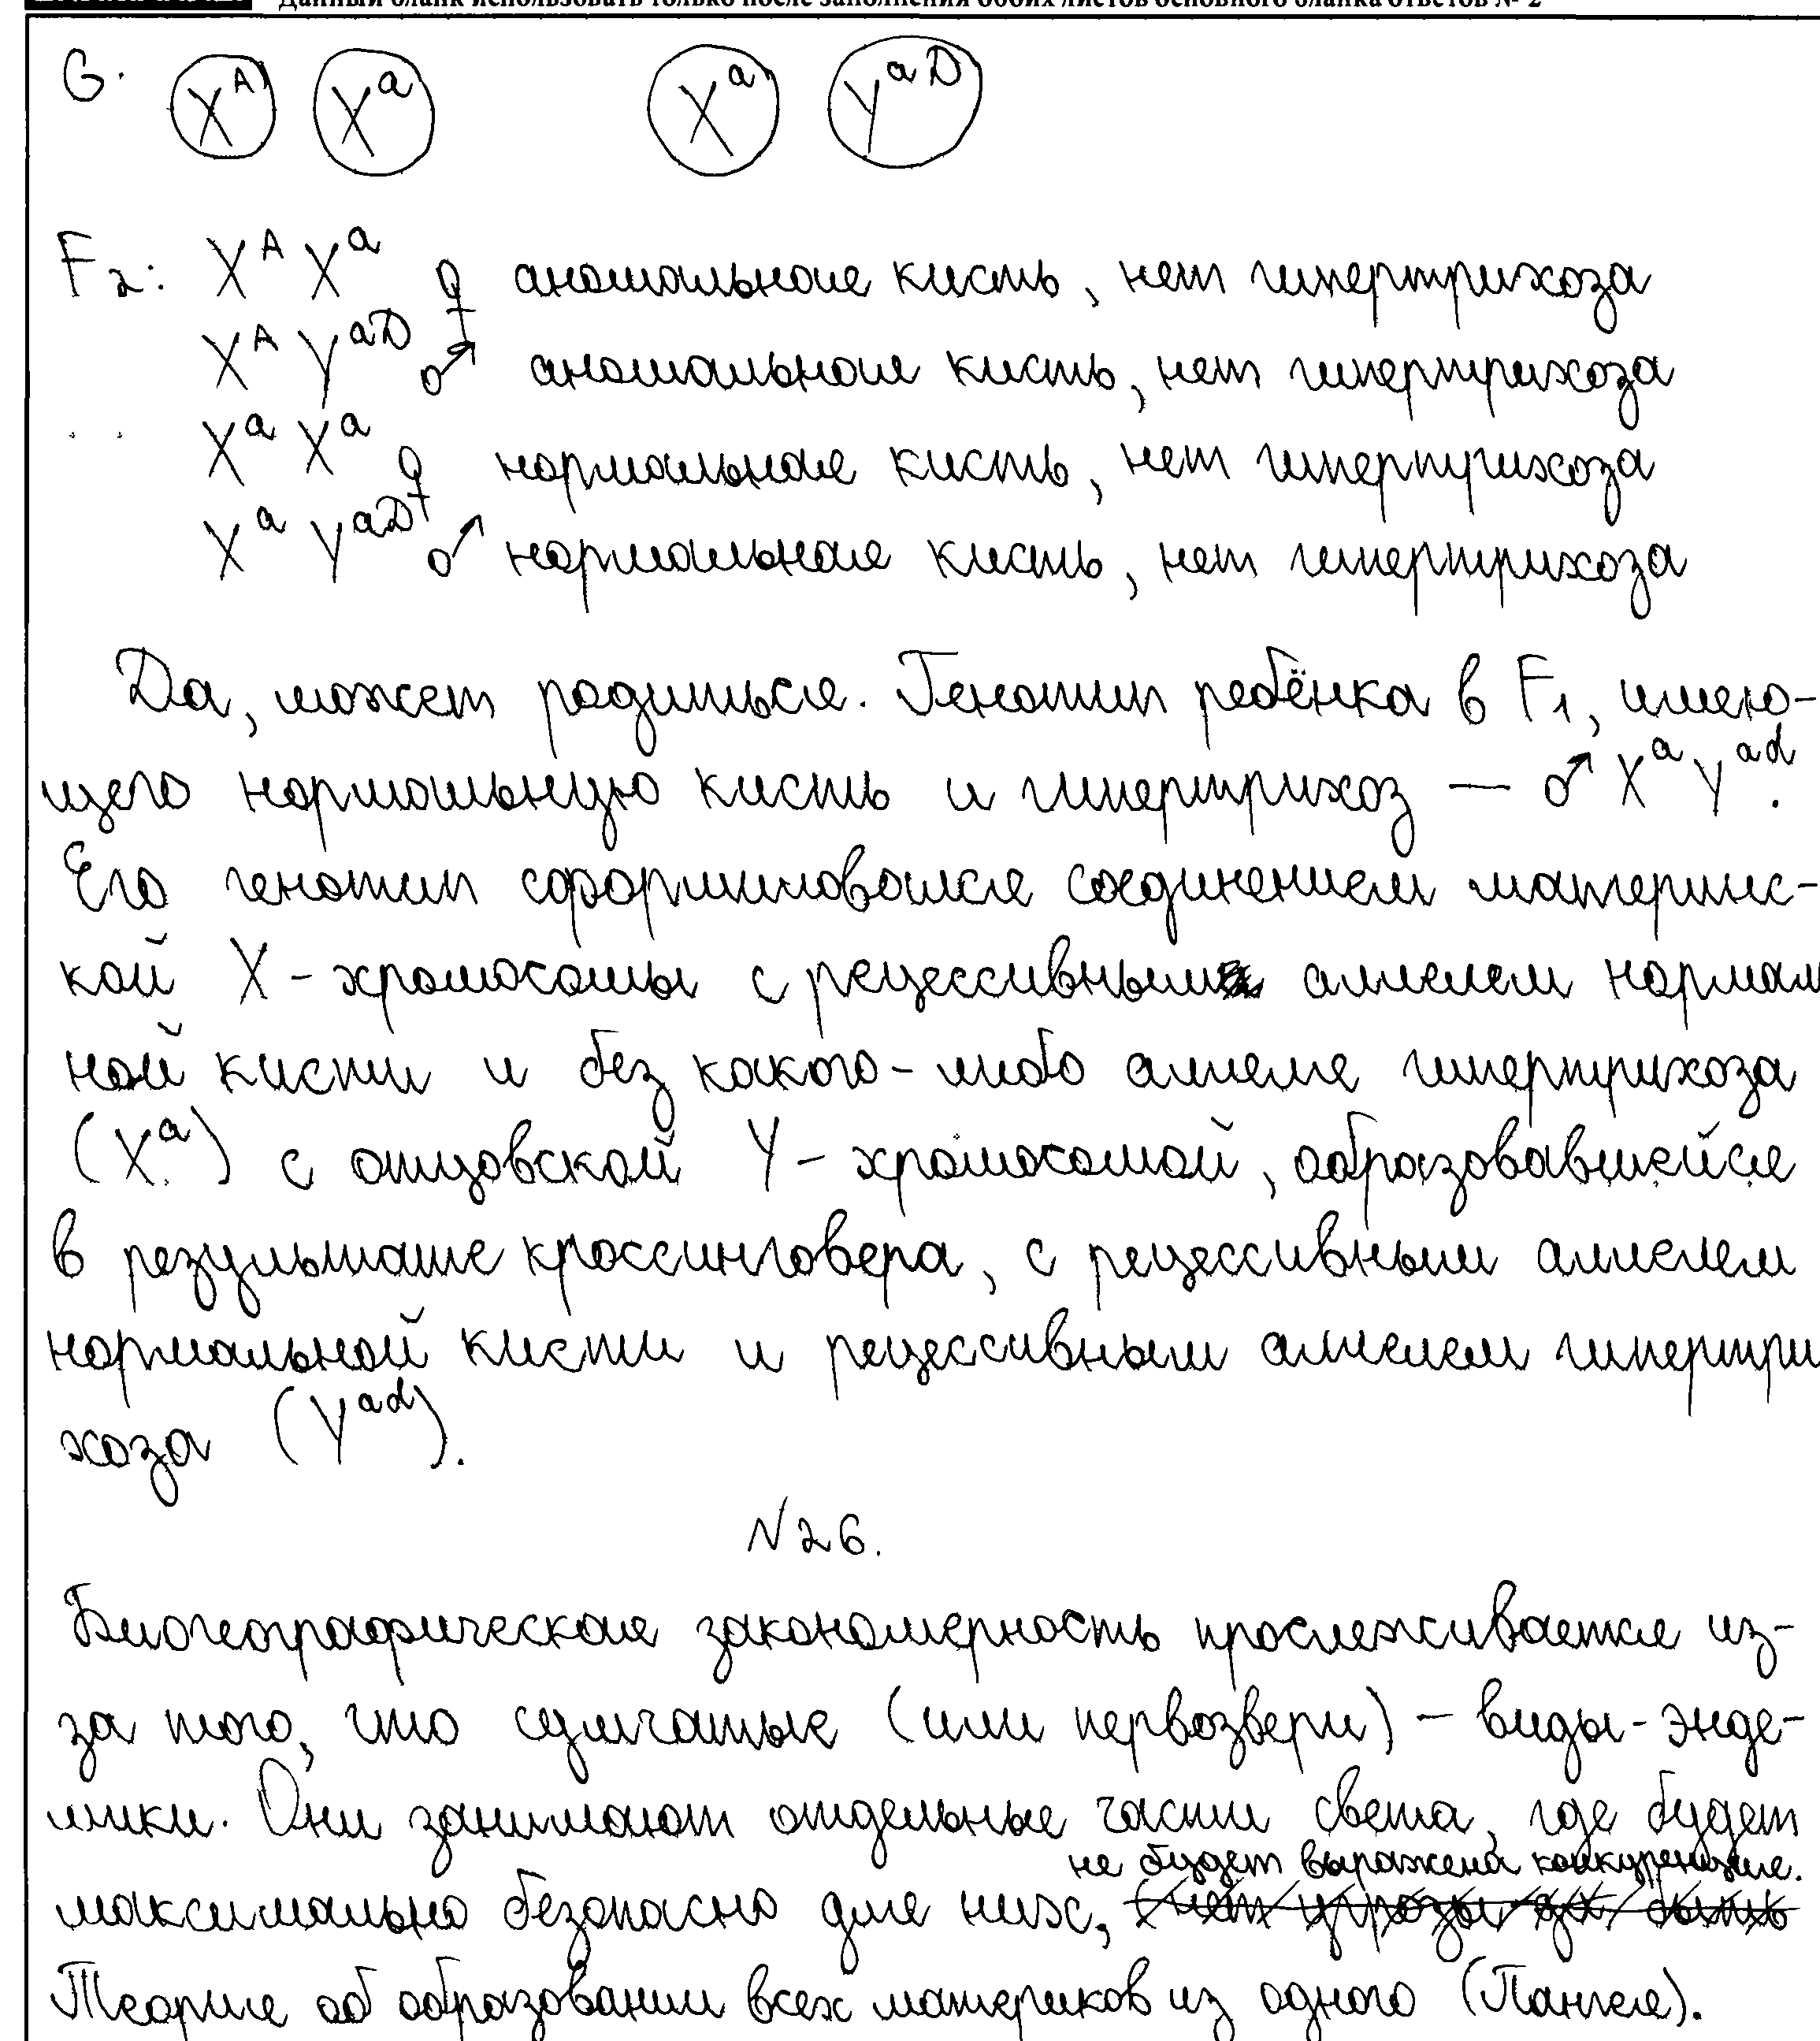 Данный бланк использовать только после заполнения обоих листов основного бланка ответов № 2
G. X^A X^a X^a Y^aD
F2: X^A X^a ♀ аномальная кисть, нет гипертрихоза
X^A Y^aD ♂ аномальная кисть, нет гипертрихоза
X^a X^a ♀ нормальная кисть, нет гипертрихоза
X^a Y^aD ♂ нормальная кисть, нет гипертрихоза
Да, может родиться. Генотип ребёнка в F1, имею-
щего нормальную кисть и гипертрихоз — ♂ X^a Y^ad.
Его генотип сформировался соединением материнс-
кой X-хромосомы с рецессивным аллелем нормал
ной кисти и без какого-либо аллеля гипертрихоза
(X^a) с отцовской Y-хромосомой, образовавшейся
в результате кроссинговера, с рецессивным аллелем
нормальной кисти и рецессивным аллелем гипертри
хоза (Y^ad).
N26.
Биогеографическая закономерность прослеживается из-
за того, что сумчатые (или первозвери) – виды-энде-
мики. Они занимают отдельные части света, где будет
не будет выражена конкуренция.
максимально безопасно для них,
Теория об образовании всех материков из одного (Пангея).